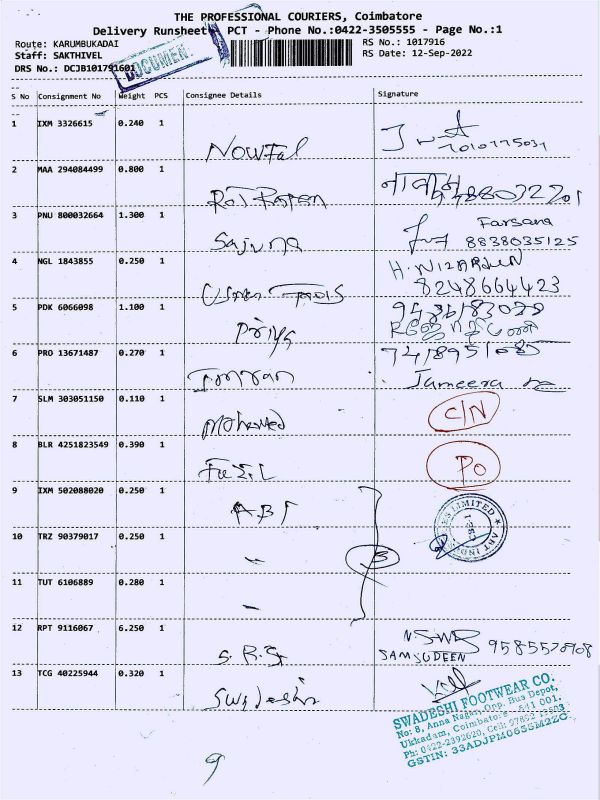 THE PROFESSIONAL COURIERS, Coimbatore
Delivery Runsheet PCT - Phone No.:0422-3505555 - Page No.:1
Route: KARUMBUKADAI RS No.: 1017916
Staff: SAKTHIVEL RS Date: 12-Sep-2022
DRS No.: DCJB101791601
DOCUMEN
S No Consignment No Weight PCS Consignee Details Signature
1 IXM 3326615 0.240 1 Nowfal
2 MAA 294084499 0.800 1
3 PNU 800032664 1.300 1 Sajuna Farsana
8838035125
4 NGL 1843855 0.250 1 H. NIZARDEEN
8248664423
5 PDK 6066098 1.100 1 Priya
6 PRO 13671487 0.270 1 Imran Jameera
7 SLM 303051150 0.110 1 Mohamed C/N
8 BLR 4251823549 0.390 1 Fazil Po
9 IXM 502088020 0.250 1 ABT
10 TRZ 90379017 0.250 1 3
11 TUT 6106889 0.280 1
12 RPT 9116067 6.250 1 S.R.S
SAMSUDEEN
13 TCG 40225944 0.320 1 Swadeshi
SWADESHI FOOTWEAR CO.
No: 8, Anna Nagar, Opp. Bus Depot,
Ukkadam, Coimbatore - 641 001.
Ph: 0422-2392620, Cell:
GSTIN: 33ADJPM0635M2ZC
9